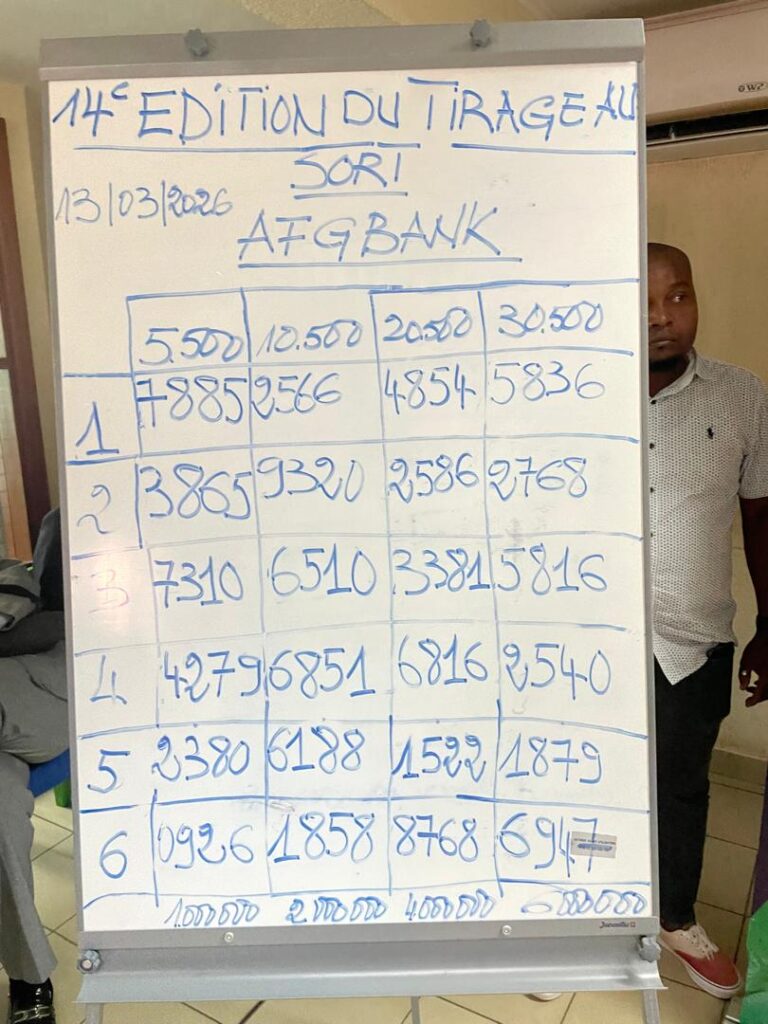 14e EDITION DU TIRAGE AU
SORT
13/03/2026
AFGBANK
5.500 10.500 20.500 30.500
1 7885 2566 4854 5836
2 3865 9320 2586 2768
3 7310 6510 3381 5816
4 4279 6851 6816 2540
5 2380 6188 1522 1879
6 0926 1858 8768 6947
1.000000 2000000 4000000 6000000